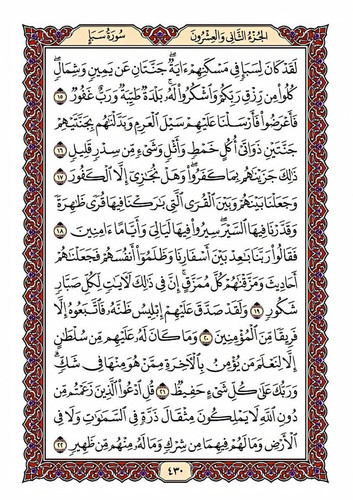 الجزء الثاني والعشرون سورة سبإ
لَقَدْ كَانَ لِسَبَإٍ فِي مَسْكَنِهِمْ ءَايَةٌ ۖ جَنَّتَانِ عَن يَمِينٍ وَشِمَالٍ ۖ
كُلُوا۟ مِن رِّزْقِ رَبِّكُمْ وَٱشْكُرُوا۟ لَهُۥ ۚ بَلْدَةٌ طَيِّبَةٌ وَرَبٌّ غَفُورٌ ١٥
فَأَعْرَضُوا۟ فَأَرْسَلْنَا عَلَيْهِمْ سَيْلَ ٱلْعَرِمِ وَبَدَّلْنَٰهُم بِجَنَّتَيْهِمْ
جَنَّتَيْنِ ذَوَاتَىْ أُكُلٍ خَمْطٍ وَأَثْلٍ وَشَىْءٍ مِّن سِدْرٍ قَلِيلٍ ١٦
ذَٰلِكَ جَزَيْنَٰهُم بِمَا كَفَرُوا۟ ۖ وَهَلْ نُجَٰزِىٓ إِلَّا ٱلْكَفُورَ ١٧
وَجَعَلْنَا بَيْنَهُمْ وَبَيْنَ ٱلْقُرَى ٱلَّتِى بَٰرَكْنَا فِيهَا قُرًى ظَٰهِرَةً
وَقَدَّرْنَا فِيهَا ٱلسَّيْرَ ۖ سِيرُوا۟ فِيهَا لَيَالِىَ وَأَيَّامًا ءَامِنِينَ ١٨
فَقَالُوا۟ رَبَّنَا بَٰعِدْ بَيْنَ أَسْفَارِنَا وَظَلَمُوٓا۟ أَنفُسَهُمْ فَجَعَلْنَٰهُمْ
أَحَادِيثَ وَمَزَّقْنَٰهُمْ كُلَّ مُمَزَّقٍ ۚ إِنَّ فِى ذَٰلِكَ لَءَايَٰتٍ لِّكُلِّ صَبَّارٍ
شَكُورٍ ١٩ وَلَقَدْ صَدَّقَ عَلَيْهِمْ إِبْلِيسُ ظَنَّهُۥ فَٱتَّبَعُوهُ إِلَّا
فَرِيقًا مِّنَ ٱلْمُؤْمِنِينَ ٢٠ وَمَا كَانَ لَهُۥ عَلَيْهِم مِّن سُلْطَٰنٍ
إِلَّا لِنَعْلَمَ مَن يُؤْمِنُ بِٱلْءَاخِرَةِ مِمَّنْ هُوَ مِنْهَا فِى شَكٍّ ۗ
وَرَبُّكَ عَلَىٰ كُلِّ شَىْءٍ حَفِيظٌ ٢١ قُلِ ٱدْعُوا۟ ٱلَّذِينَ زَعَمْتُم مِّن
دُونِ ٱللَّهِ ۖ لَا يَمْلِكُونَ مِثْقَالَ ذَرَّةٍ فِى ٱلسَّمَٰوَٰتِ وَلَا فِى
ٱلْأَرْضِ وَمَا لَهُمْ فِيهِمَا مِن شِرْكٍ وَمَا لَهُۥ مِنْهُم مِّن ظَهِيرٍ ٢٢
٤٣٠